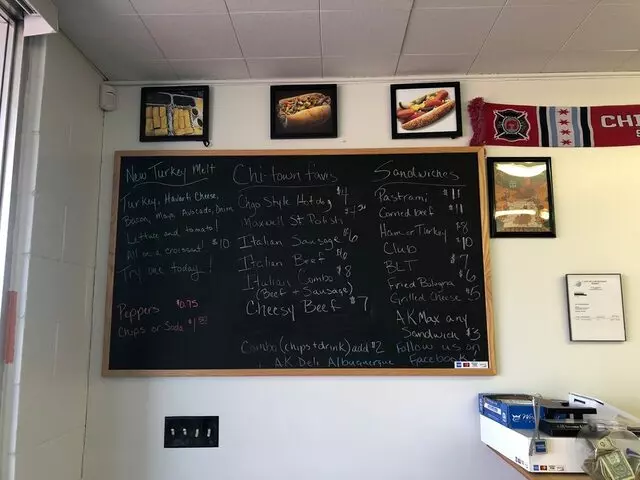 New Turkey Melt
Turkey, Havarti Cheese,
Bacon, Mayo, Avocado, Onion
Lettuce and tomato!
All on a croissant! $10
Try one today!
Peppers $0.75
Chips or Soda $1
Chi-town Favs
Chgo Style Hotdog $4
Maxwell St Polish $4
Italian Sausage $6
Italian Beef $6
Italian Combo $8
(Beef + Sausage)
Cheesy Beef $7
Combo (chips+drink) add $2
AK Deli Albuquerque
Sandwiches
Pastrami $11
Corned beef $11
Ham or Turkey $8
Club $10
BLT $7
Fried Bologna $6
Grilled Cheese $5
AK Max any
Sandwich $3
Follow us on
Facebook!
CHI